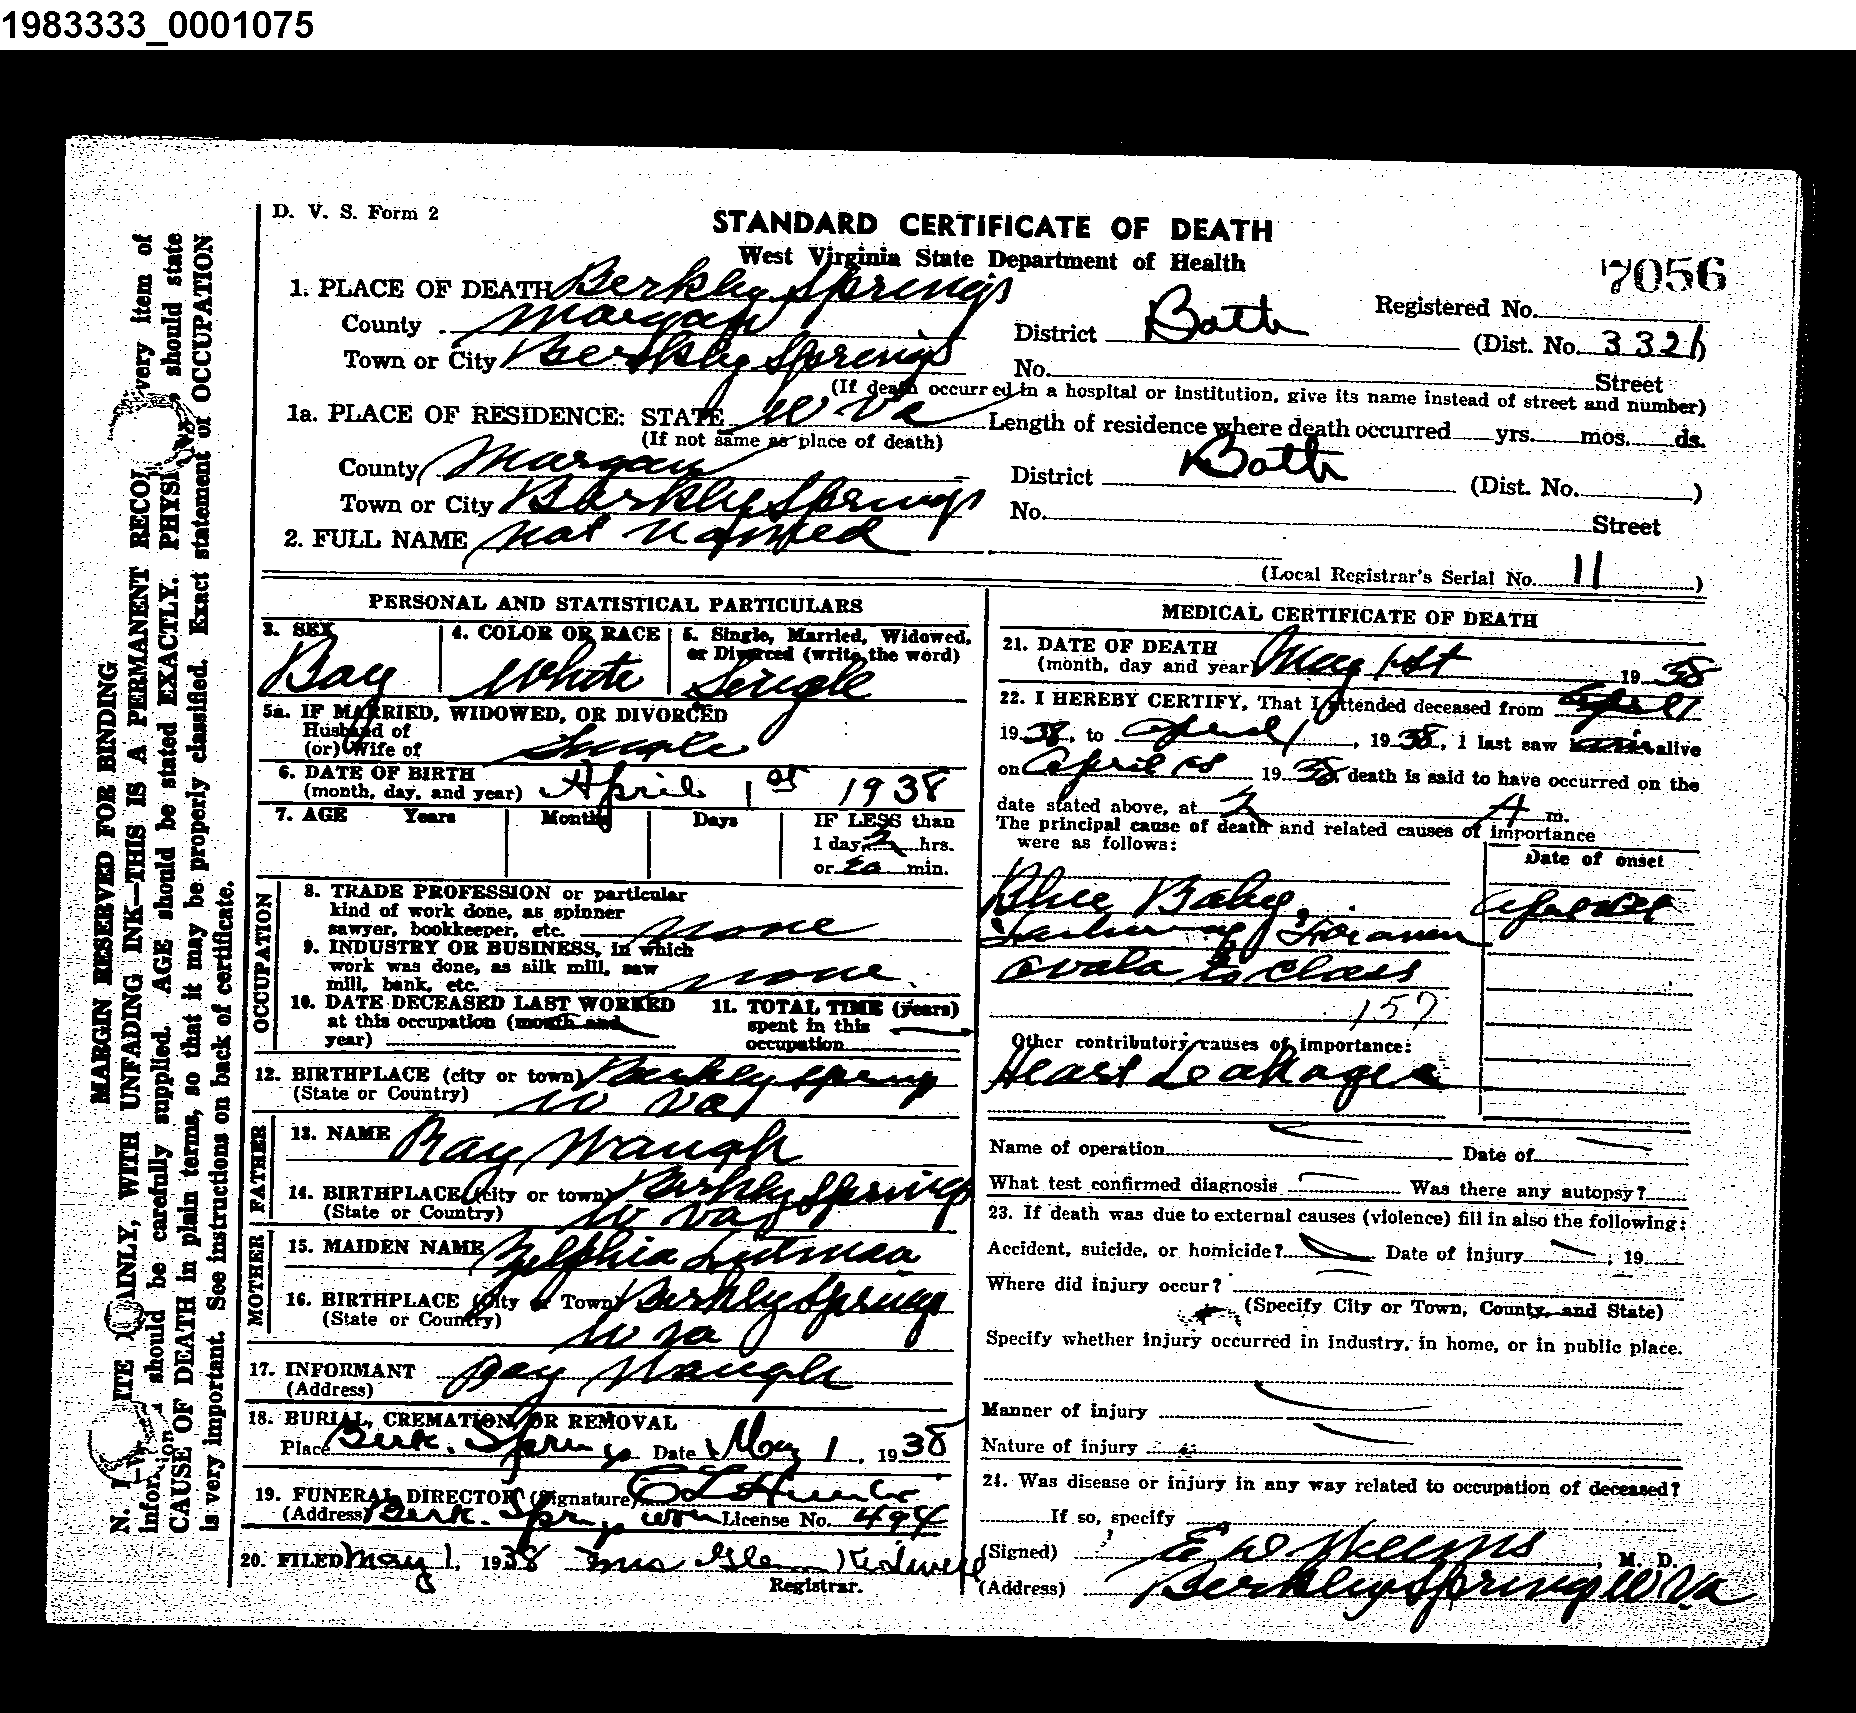 1983333_0001075
D. V. S. Form 2
STANDARD CERTIFICATE OF DEATH
West Virginia State Department of Health
7056
1. PLACE OF DEATH Berkley Springs
Registered No.
County Morgan District Bath (Dist. No. 3326)
Town or City Berkley Springs No. Street
(If death occurred in a hospital or institution, give its name instead of street and number)
1a. PLACE OF RESIDENCE: STATE W Va Length of residence where death occurred yrs. mos. ds.
(If not same as place of death)
County Morgan District Bath (Dist. No. )
Town or City Berkley Springs No. Street
2. FULL NAME Not Named
(Local Registrar's Serial No. 11 )
PERSONAL AND STATISTICAL PARTICULARS
3. SEX Boy
4. COLOR OR RACE White
5. Single, Married, Widowed, or Divorced (write the word) Single
5a. IF MARRIED, WIDOWED, OR DIVORCED
Husband of
(or) Wife of Single
6. DATE OF BIRTH
(month, day, and year) April 1st 1938
7. AGE Years Months Days IF LESS than
1 day, 2 hrs.
or min.
OCCUPATION
8. TRADE PROFESSION or particular
kind of work done, as spinner
sawyer, bookkeeper, etc. none
9. INDUSTRY OR BUSINESS, in which
work was done, as silk mill, saw
mill, bank, etc. none
10. DATE DECEASED LAST WORKED
at this occupation (month and
year)
11. TOTAL TIME (years)
spent in this
occupation
12. BIRTHPLACE (city or town) Berkley Spring
(State or Country) W Va
FATHER
13. NAME Ray Waugh
14. BIRTHPLACE (city or town) Berkley Springs
(State or Country) W Va
MOTHER
15. MAIDEN NAME Zelphia
16. BIRTHPLACE (City or Town) Berkley Springs
(State or Country) W Va
17. INFORMANT Ray Waugh
(Address)
18. BURIAL, CREMATION, OR REMOVAL
Place Berk. Springs Date May 1, 1938
19. FUNERAL DIRECTOR (Signature) E L Hunter
(Address) Berk. Springs License No. 494
20. FILED May 1, 1938 Mrs Glenn Kidwell
Registrar.
MEDICAL CERTIFICATE OF DEATH
21. DATE OF DEATH
(month, day and year) May 1st 1938
22. I HEREBY CERTIFY, That I attended deceased from April 1
1938, to April 1, 1938, I last saw alive
on April 1938, death is said to have occurred on the
date stated above, at 2 A m.
The principal cause of death and related causes of importance
were as follows:
Date of onset
Blue Baby,
Foramen
Ovala to Class
157
Other contributory causes of importance:
Heart Leakage
Name of operation Date of
What test confirmed diagnosis Was there any autopsy?
23. If death was due to external causes (violence) fill in also the following:
Accident, suicide, or homicide? Date of injury , 19
Where did injury occur?
(Specify City or Town, County, and State)
Specify whether injury occurred in industry, in home, or in public place.
Manner of injury
Nature of injury
24. Was disease or injury in any way related to occupation of deceased?
If so, specify
(Signed) E W Weems, M. D.
(Address) Berkley Springs W Va
MARGIN RESERVED FOR BINDING
AINLY, WITH UNFADING INK—THIS IS A PERMANENT
should be carefully supplied. AGE should be stated EXACTLY. should state
CAUSE OF DEATH in plain terms, so that it may be properly classified. Exact statement of OCCUPATION
is very important. See instructions on back of certificate.